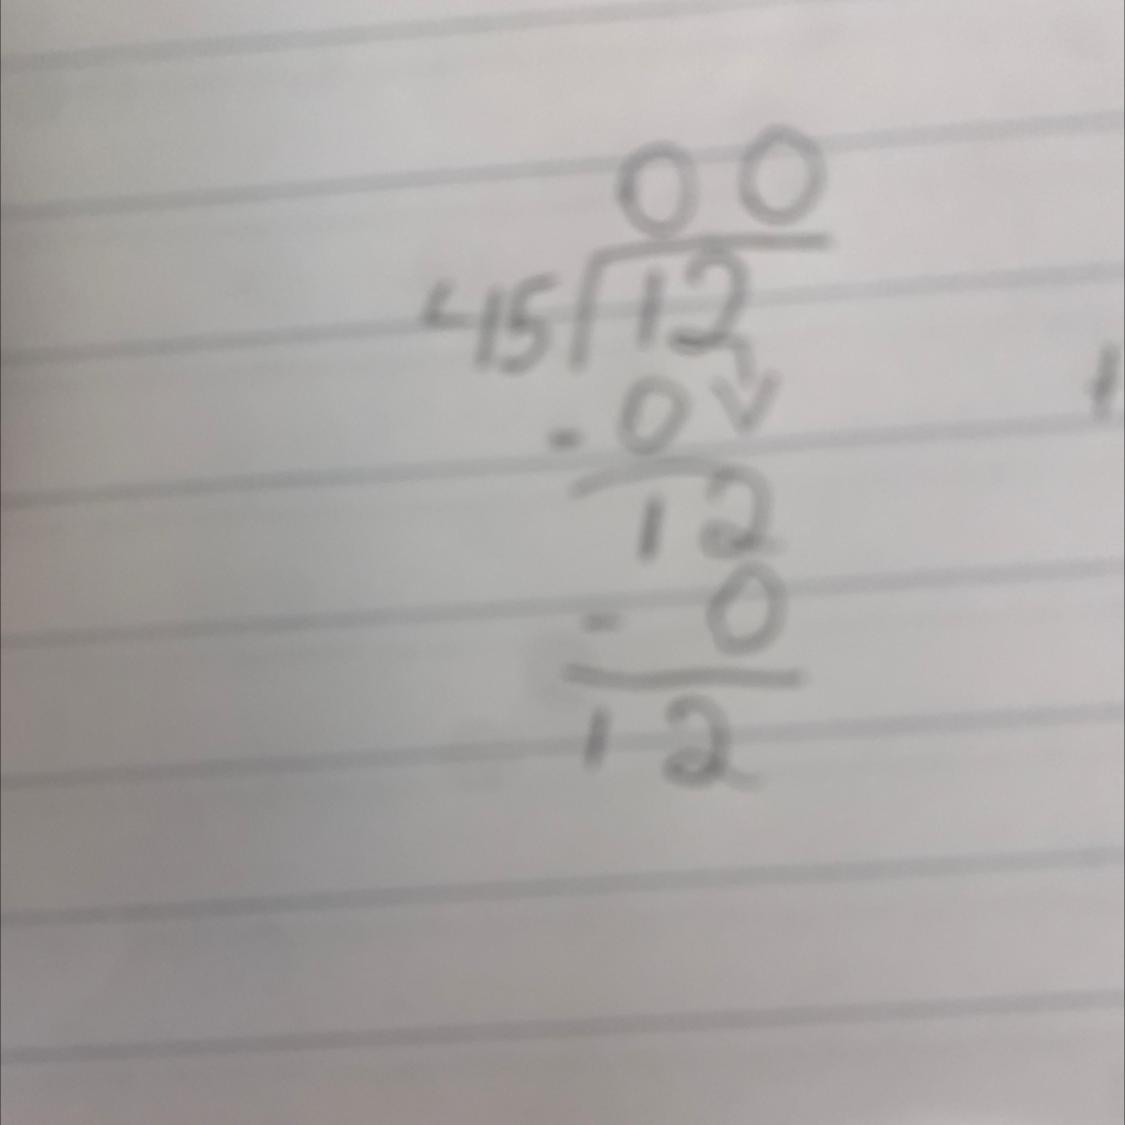 00
45 12
- 0
12
- 0
12